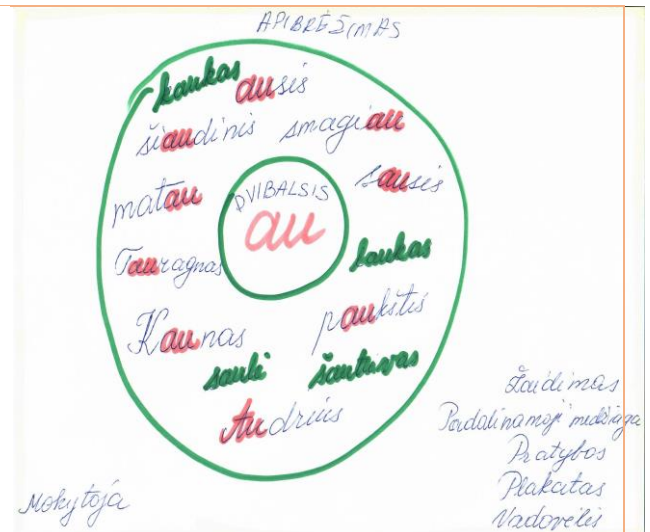 APIBRĖŽIMAS
kaukas ausis
šiaudinis smagiau
matau sausis
DVIBALSIS
au
Tauragnas laukas
Kaunas paukštis
saulė šautuvas
Audrius
Žaidimas
Padalinamoji medžiaga
Pratybos
Plakatas
Vadovėlis
Mokytoja